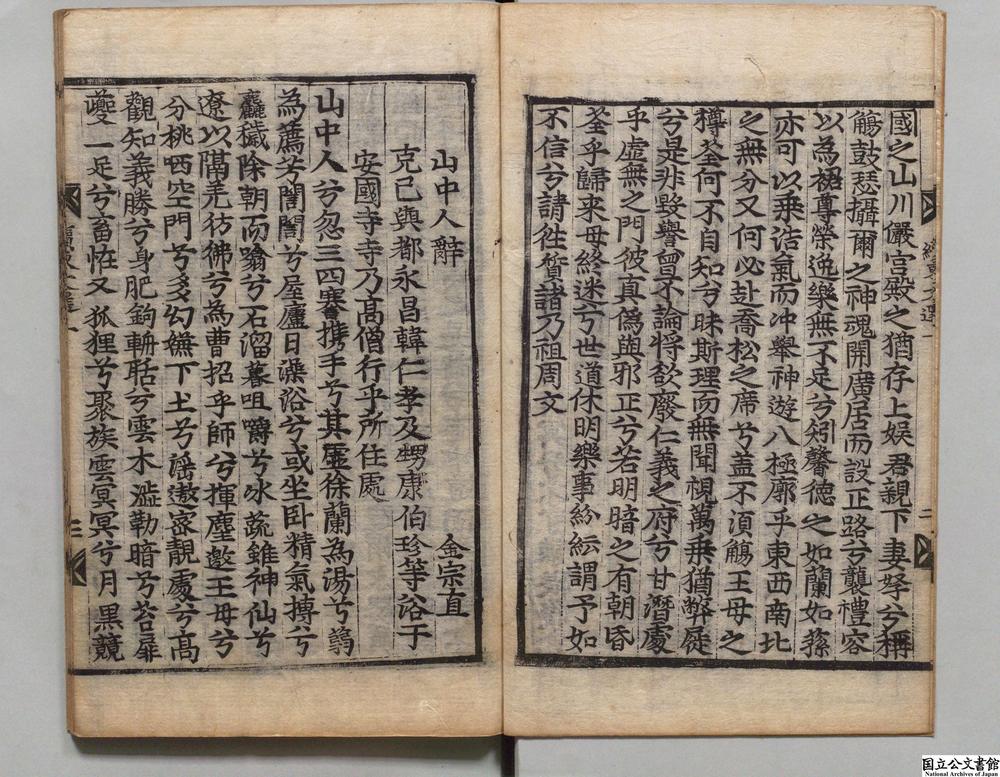 國之山川儼宮殿之猶存上娛君親下妻孥兮稱
觴鼓瑟攝爾之神魂開廣居而設正路兮襲禮容
以為裙尊榮逸樂無不足兮矧馨德之如蘭如蓀
亦可以乗浩氣而冲舉神遊八極廓乎東西南北
之無分又何必赴喬松之席兮盖不湏觴王母之
樽荃何不自知兮昧斯理而無聞視萬乗猶弊屣
兮是非毀譽曾不論將欲廢仁義之府兮甘潛處
乎虛無之門彼真偽與邪正兮若明暗之有朝昏
荃乎歸来毋終迷兮世道休明樂事紛紜謂予如
不信兮請徃質諸乃祖周文
續東文選一
二
山中人辭
金宗直
克己與都永昌韓仁孝及甥康伯珍等浴于
安國寺寺乃髙僧行乎所住處
山中人兮忽三四搴攜手兮其虛徐蘭為湯兮
為薦芳誾誾兮屋廬日澡浴兮或坐卧精氣摶兮
麤穢除朝而蹹兮石溜暮咀嚼兮氷蔬雖神仙兮
遼以隔羌彷彿兮為曹招乎師兮揮麈邀王母兮
分桃哂空門兮多幻嫵下土兮謡遨宻靚處兮髙
觀知義勝兮身肥鉤輈聒兮雲木濫勒暗兮苔扉
夔一足兮畜恠又狐狸兮聚族雲冥冥兮月黒競
三
国立公文書館
National Archives of Japan